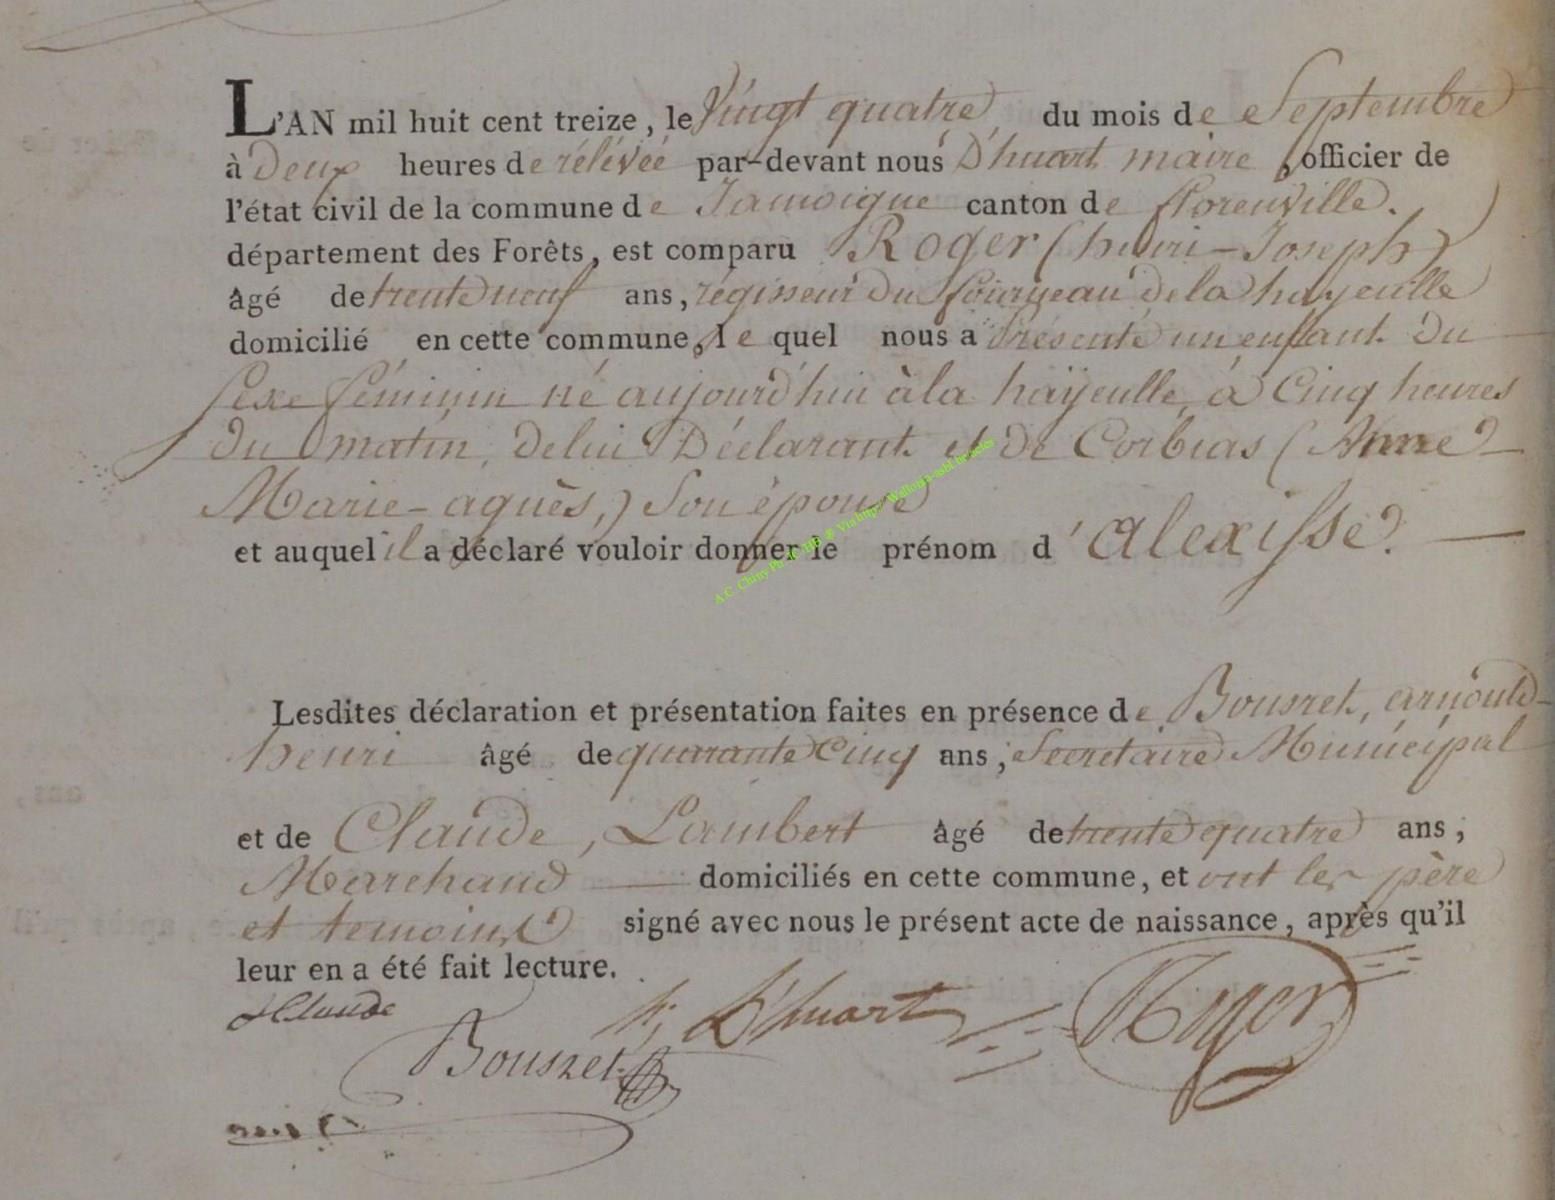 L'AN mil huit cent treize, le Vingt quatre du mois de Septembre
à Deux heures de rélévée par-devant nous D'huart maire, officier de
l'état civil de la commune de Jamoigne canton de florenville.
département des Forêts, est comparu Roger (henri-Joseph)
âgé de trente neuf ans, régisseur Du fourneau de la hayeulle
domicilié en cette commune, le quel nous a Présenté un enfant Du
Sexe féminin né aujourd'hui à la hayeulle, à Cinq heures
du matin, de lui Déclarant et de Corbias (Anne
Marie-agnès,) Son épouse
et auquel il a déclaré vouloir donner le prénom d'alexisse.
Lesdites déclaration et présentation faites en présence de Bousret, arnould-
henri âgé de quarante Cinq ans, Secretaire Municipal
et de Claude, Lambert âgé de trente quatre ans,
Marchand domiciliés en cette commune, et ont les père
et temoins signé avec nous le présent acte de naissance, après qu'il
leur en a été fait lecture.
Claude
D'huart
Roger
Bousret